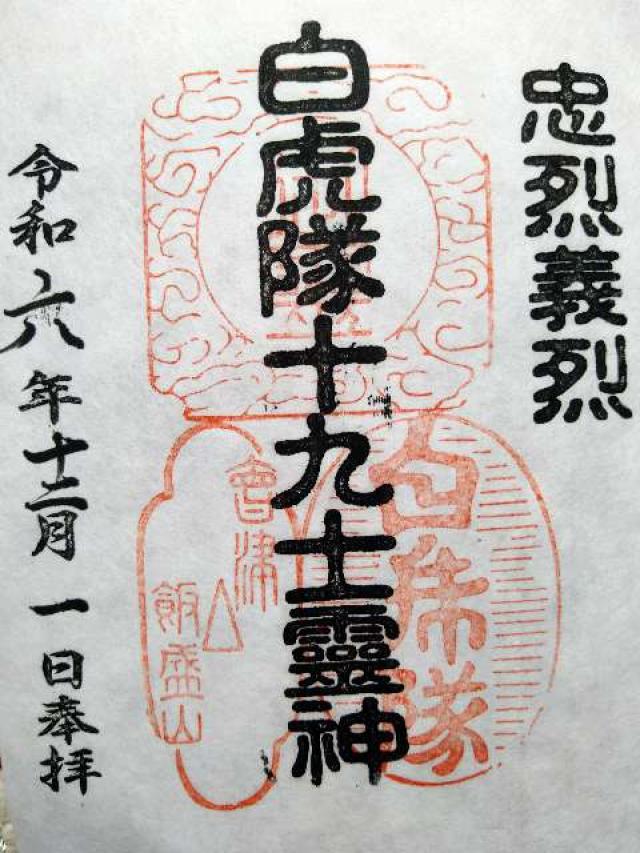 忠烈義烈
白虎隊十九士靈神
令和六年十二月一日奉拝
白虎隊
會津
飯盛山